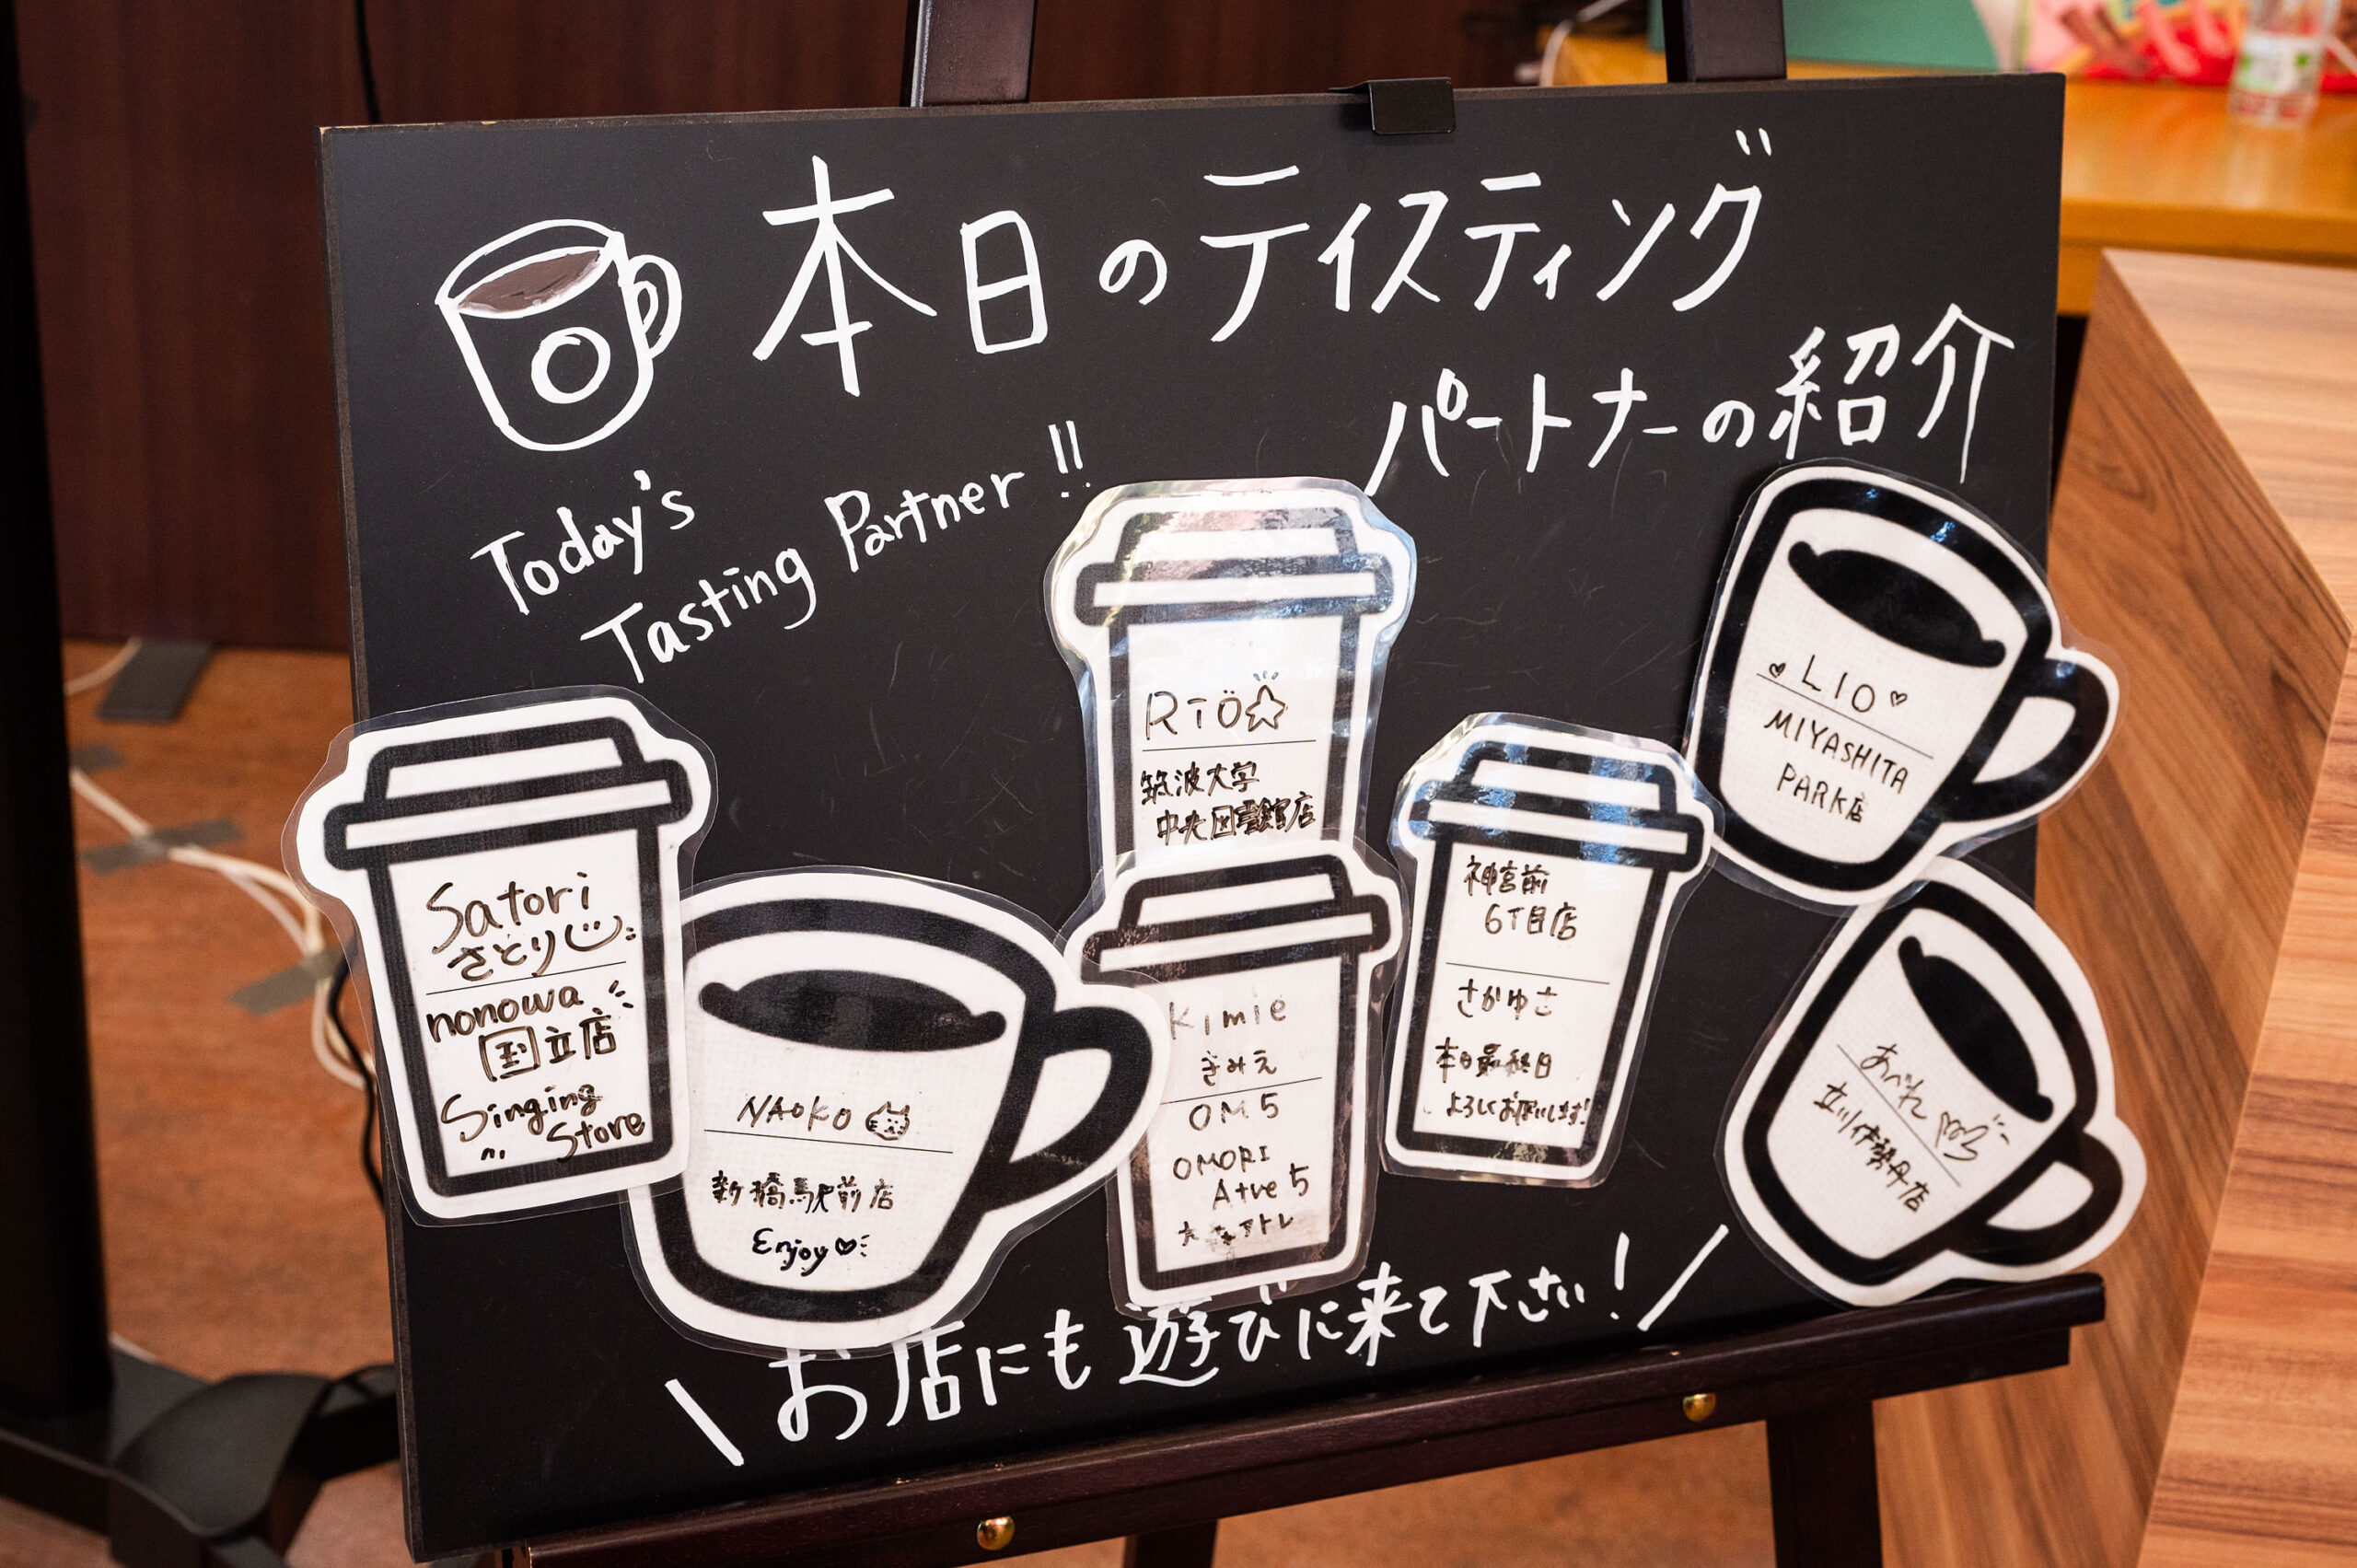 本日のティスティング
パートナーの紹介
Today's
Tasting Partner!!
Rio☆
筑波大学
中央図書館店
♥LIO♥
MIYASHITA
PARK店
Satori
さとり
nonowa
国立店
Singing
Store
NAOKO
新橋駅前店
Enjoy♡
Kimie
きみえ
OM5
OMORI
Atre 5
アトレ
神宮前
6丁目店
さかゆさ
本日最終日
よろしくお願いします!
あべれ
立川伊勢丹店
\お店にも遊びに来て下さい!/